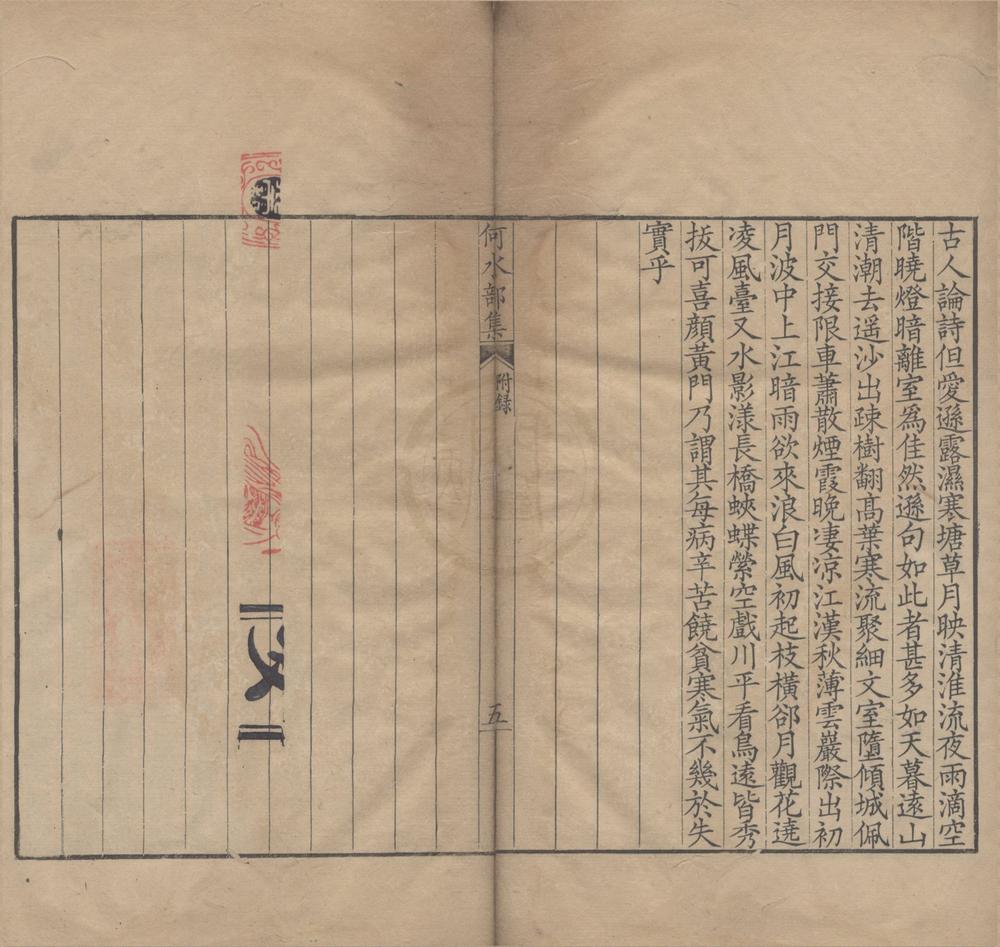 古人論詩但愛遜露濕寒塘草月映清淮流夜雨滴空
階曉燈暗離室為佳然遜句如此者甚多如天暮遠山
清潮去遥沙出疎樹翻髙葉寒流聚細文室墮傾城佩
門交接限車蕭散煙霞晚凄涼江漢秋薄雲巖際出初
月波中上江暗雨欲來浪白風初起枝橫郤月觀花遶
凌風臺又水影漾長橋蛺蝶縈空戲川平看鳥遠皆秀
拔可喜顔黃門乃謂其每病辛苦饒貧寒氣不幾於失
實乎
何水部集
附録
五